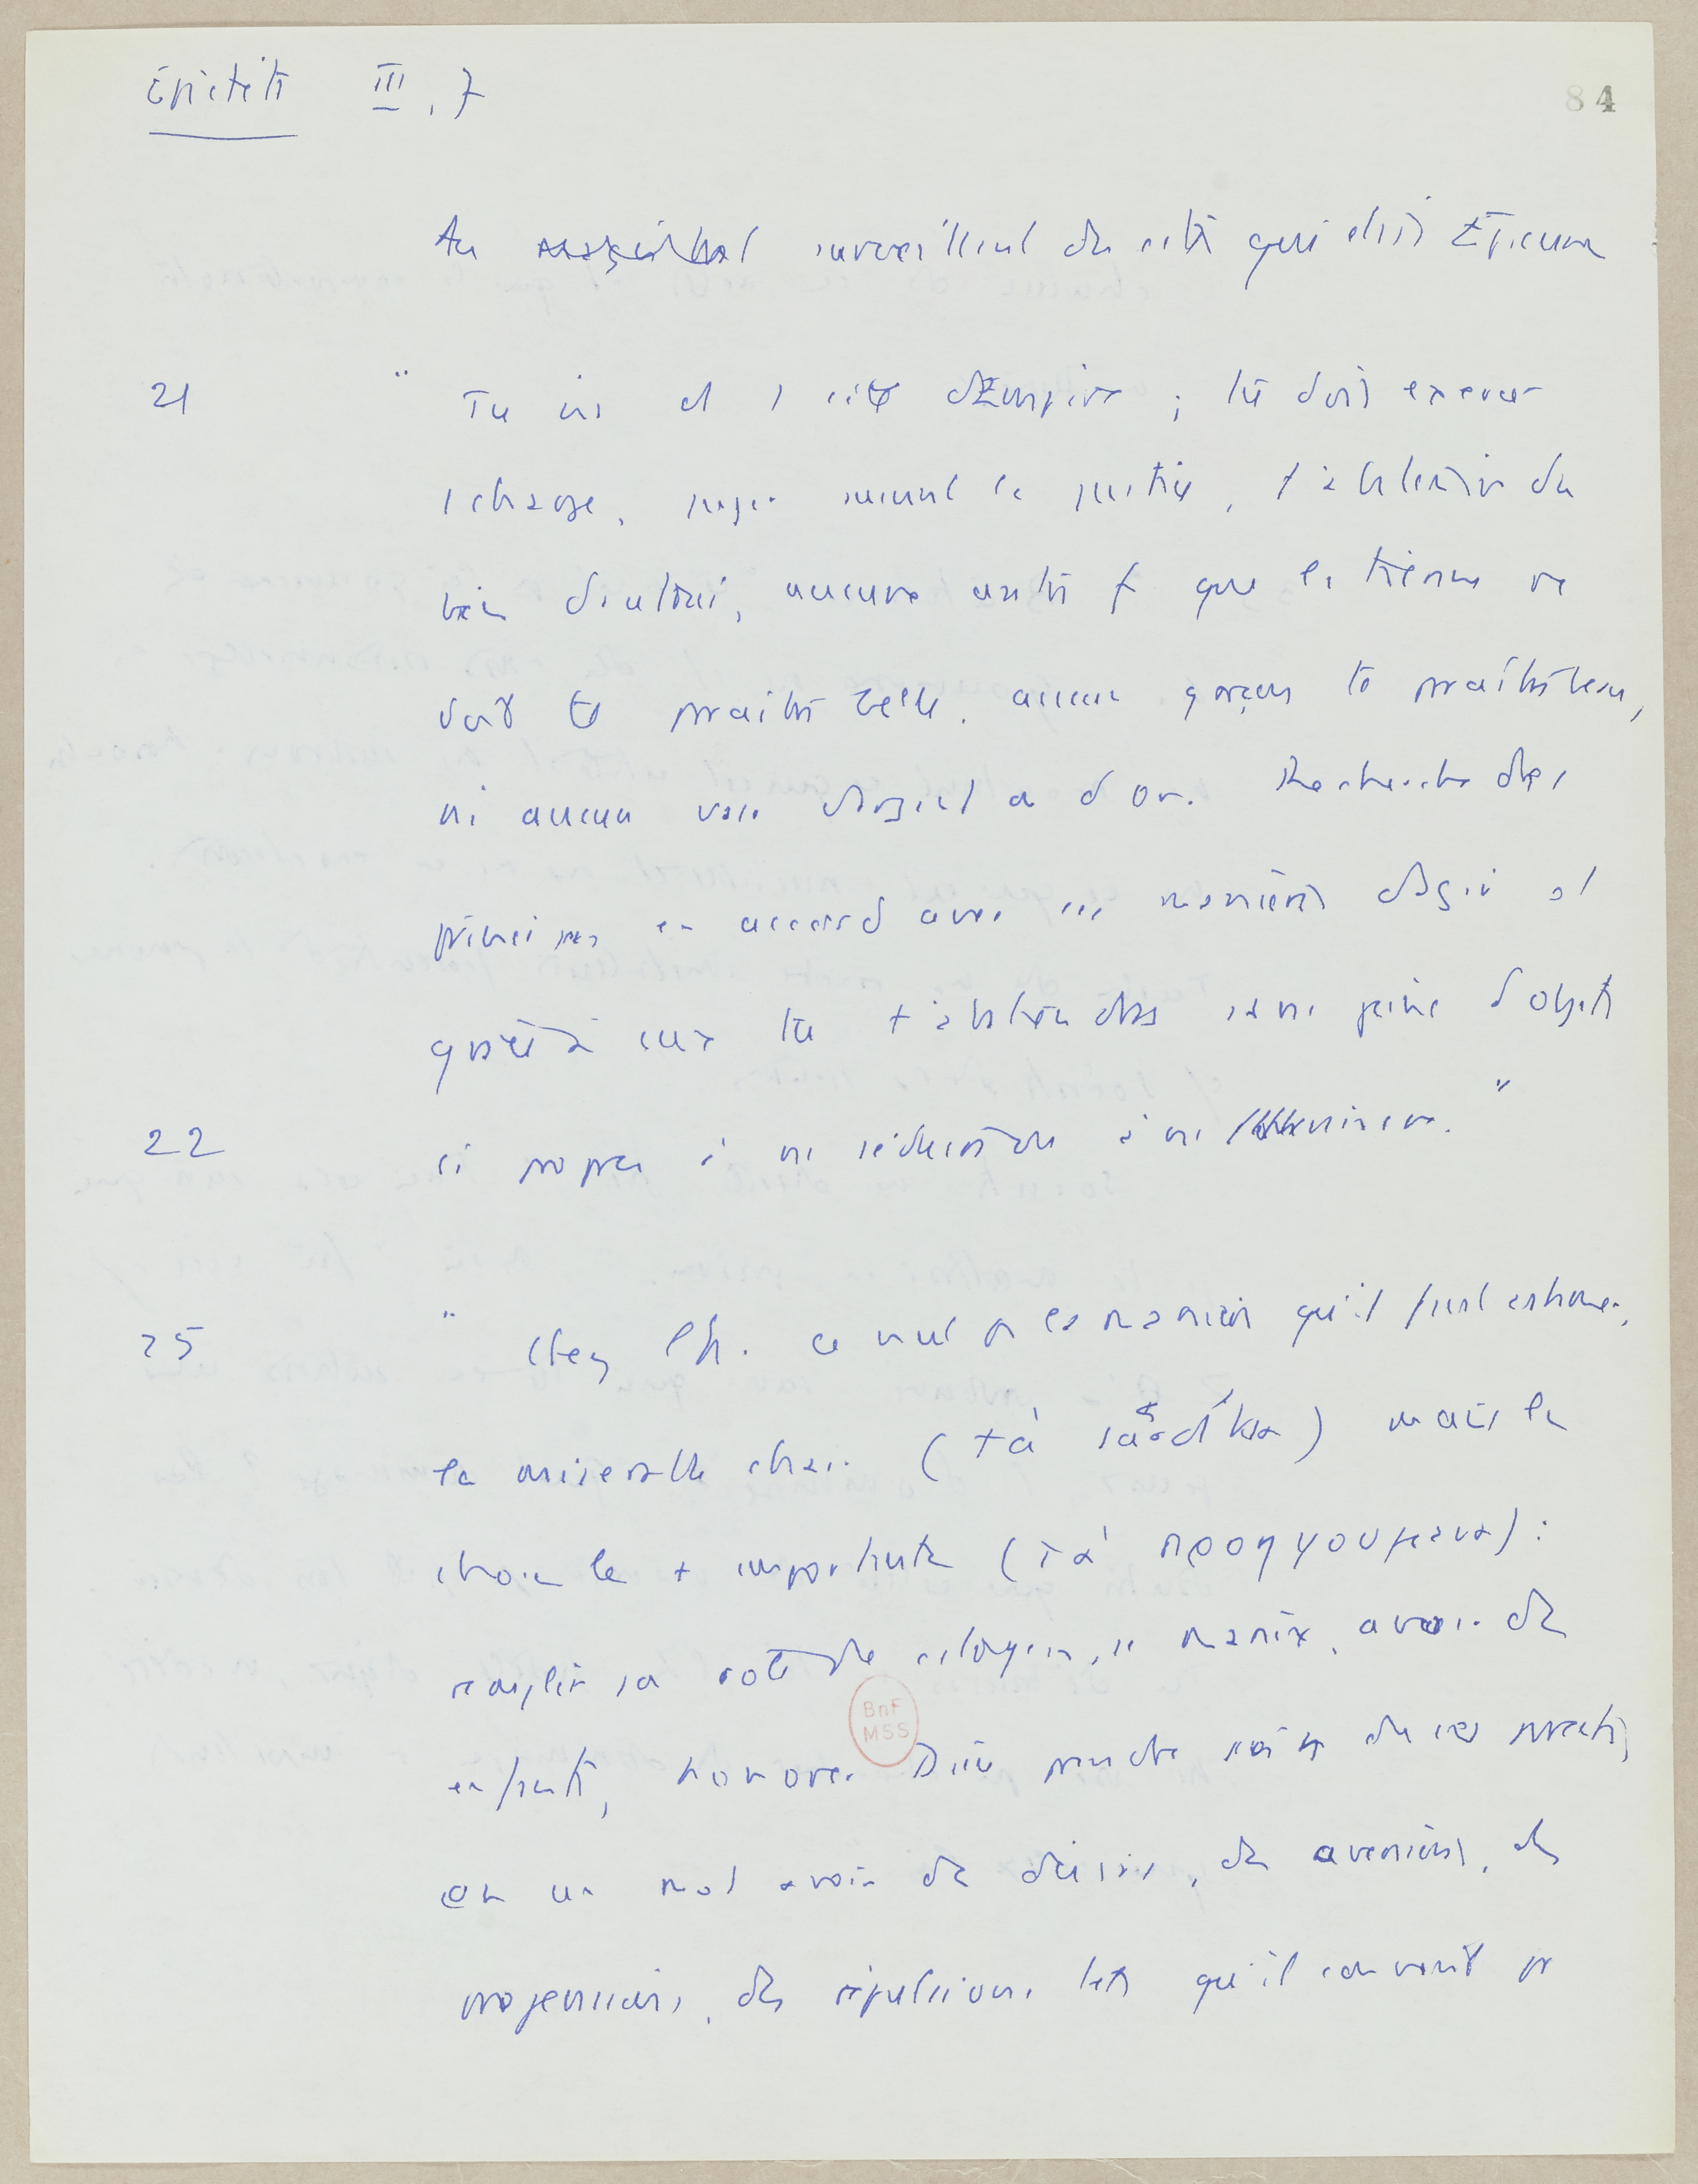 Épictète III, 7
84
Au surveillant des cités qui était Épicure
21 " Tu vis ds 1 cité d'Empire ; tu dois exercer
1 charge, juger suivant la justice, t'abstenir du
bien d'autrui, aucune autre f que la tienne ne
doit te paraître belle, aucun garçon te paraître beau,
ni aucun vase d'argent ou d'or. Recherche des
principes en accord avec ces manières d'agir et
grâce à eux tu t'abstiendras sans peine d'objets
22 si propres à ns séduire à ns "
25 " Chez l'h. ce n'est p la manière qu'il faut estimer,
la misérable chair (τὰ ) mais les
choses les + importantes (τὰ προηγουμενα) :
remplir son rôle de citoyen, se marier, avoir des
enfants, honorer Dieu prendre soin de ses parents,
en un mot avoir des désirs, des aversions, des
propensions, des répulsions tels qu'il convient pr
BnF
MSS